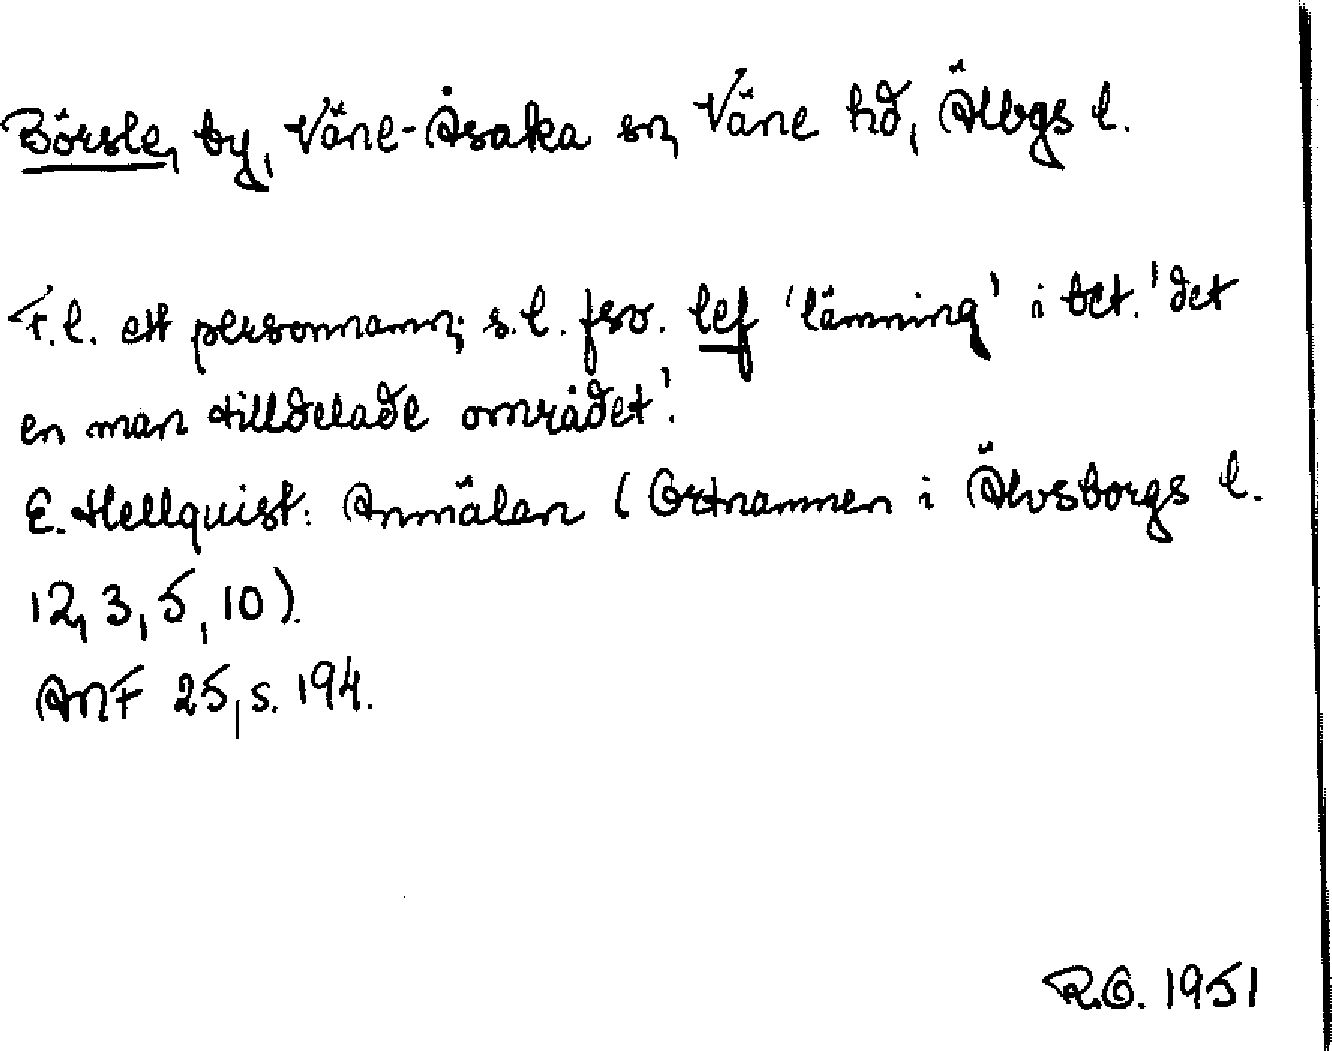 Börsle, by, Väne-Åsaka sn, Väne hd, Älvbgs l.
F.l. ett personnamn; s.l. fsv. lef 'lämning' i bet. 'det
en man tilldelade området'.
E. Hellquist: Anmälan (Ortnamnen i Älvsborgs l.
12, 3, 5, 10).
ANF 25, s. 194.
R.O. 1951